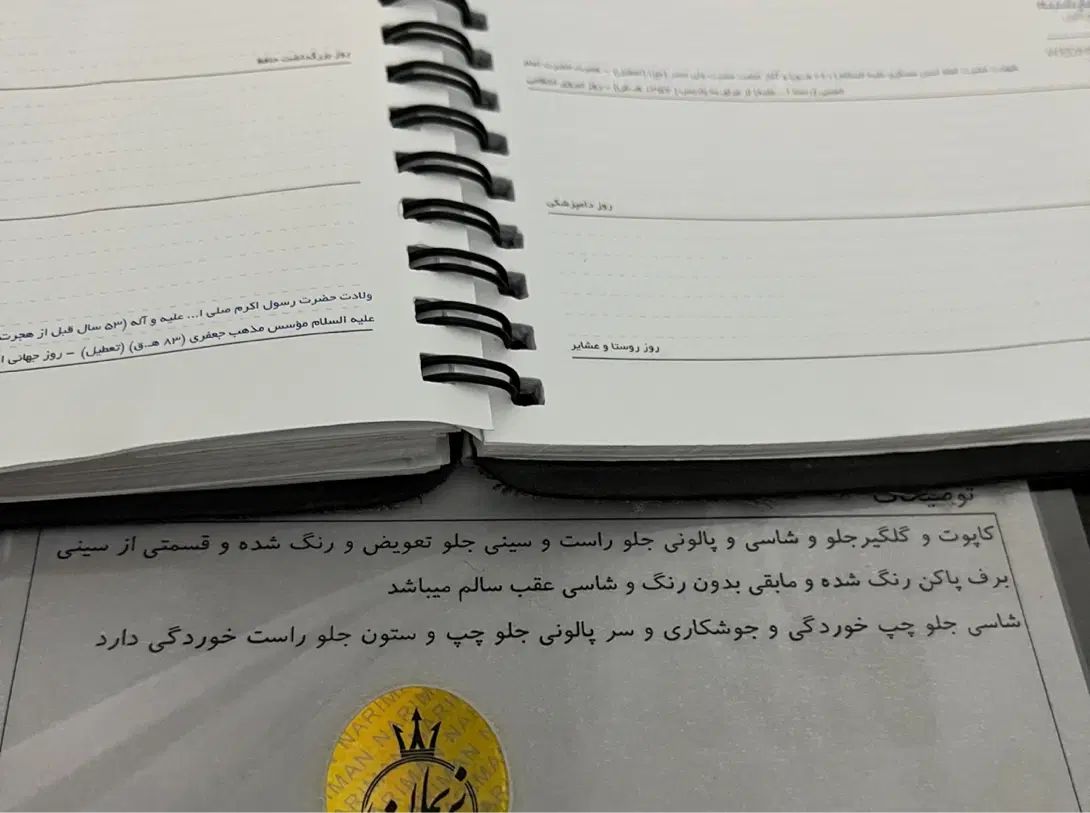 روز بزرگداشت حافظ
ولادت حضرت رسول اکرم صلی ا... علیه و آله (۵۳ سال قبل از هجرت
علیه السلام مؤسس مذهب جعفری (۸۳ هـ.ق) (تعطیل) - روز جهانی
روز دامپزشکی
روز روستا و عشایر
توضیحات
کاپوت و گلگیر جلو و شاسی و پالونی جلو راست و سینی جلو تعویض و رنگ شده و قسمتی از سینی
برف پاکن رنگ شده و مابقی بدون رنگ و شاسی عقب سالم میباشد
شاسی جلو چپ خوردگی و جوشکاری و سر پالونی جلو چپ و ستون جلو راست خوردگی دارد
NARIMAN
نریمان